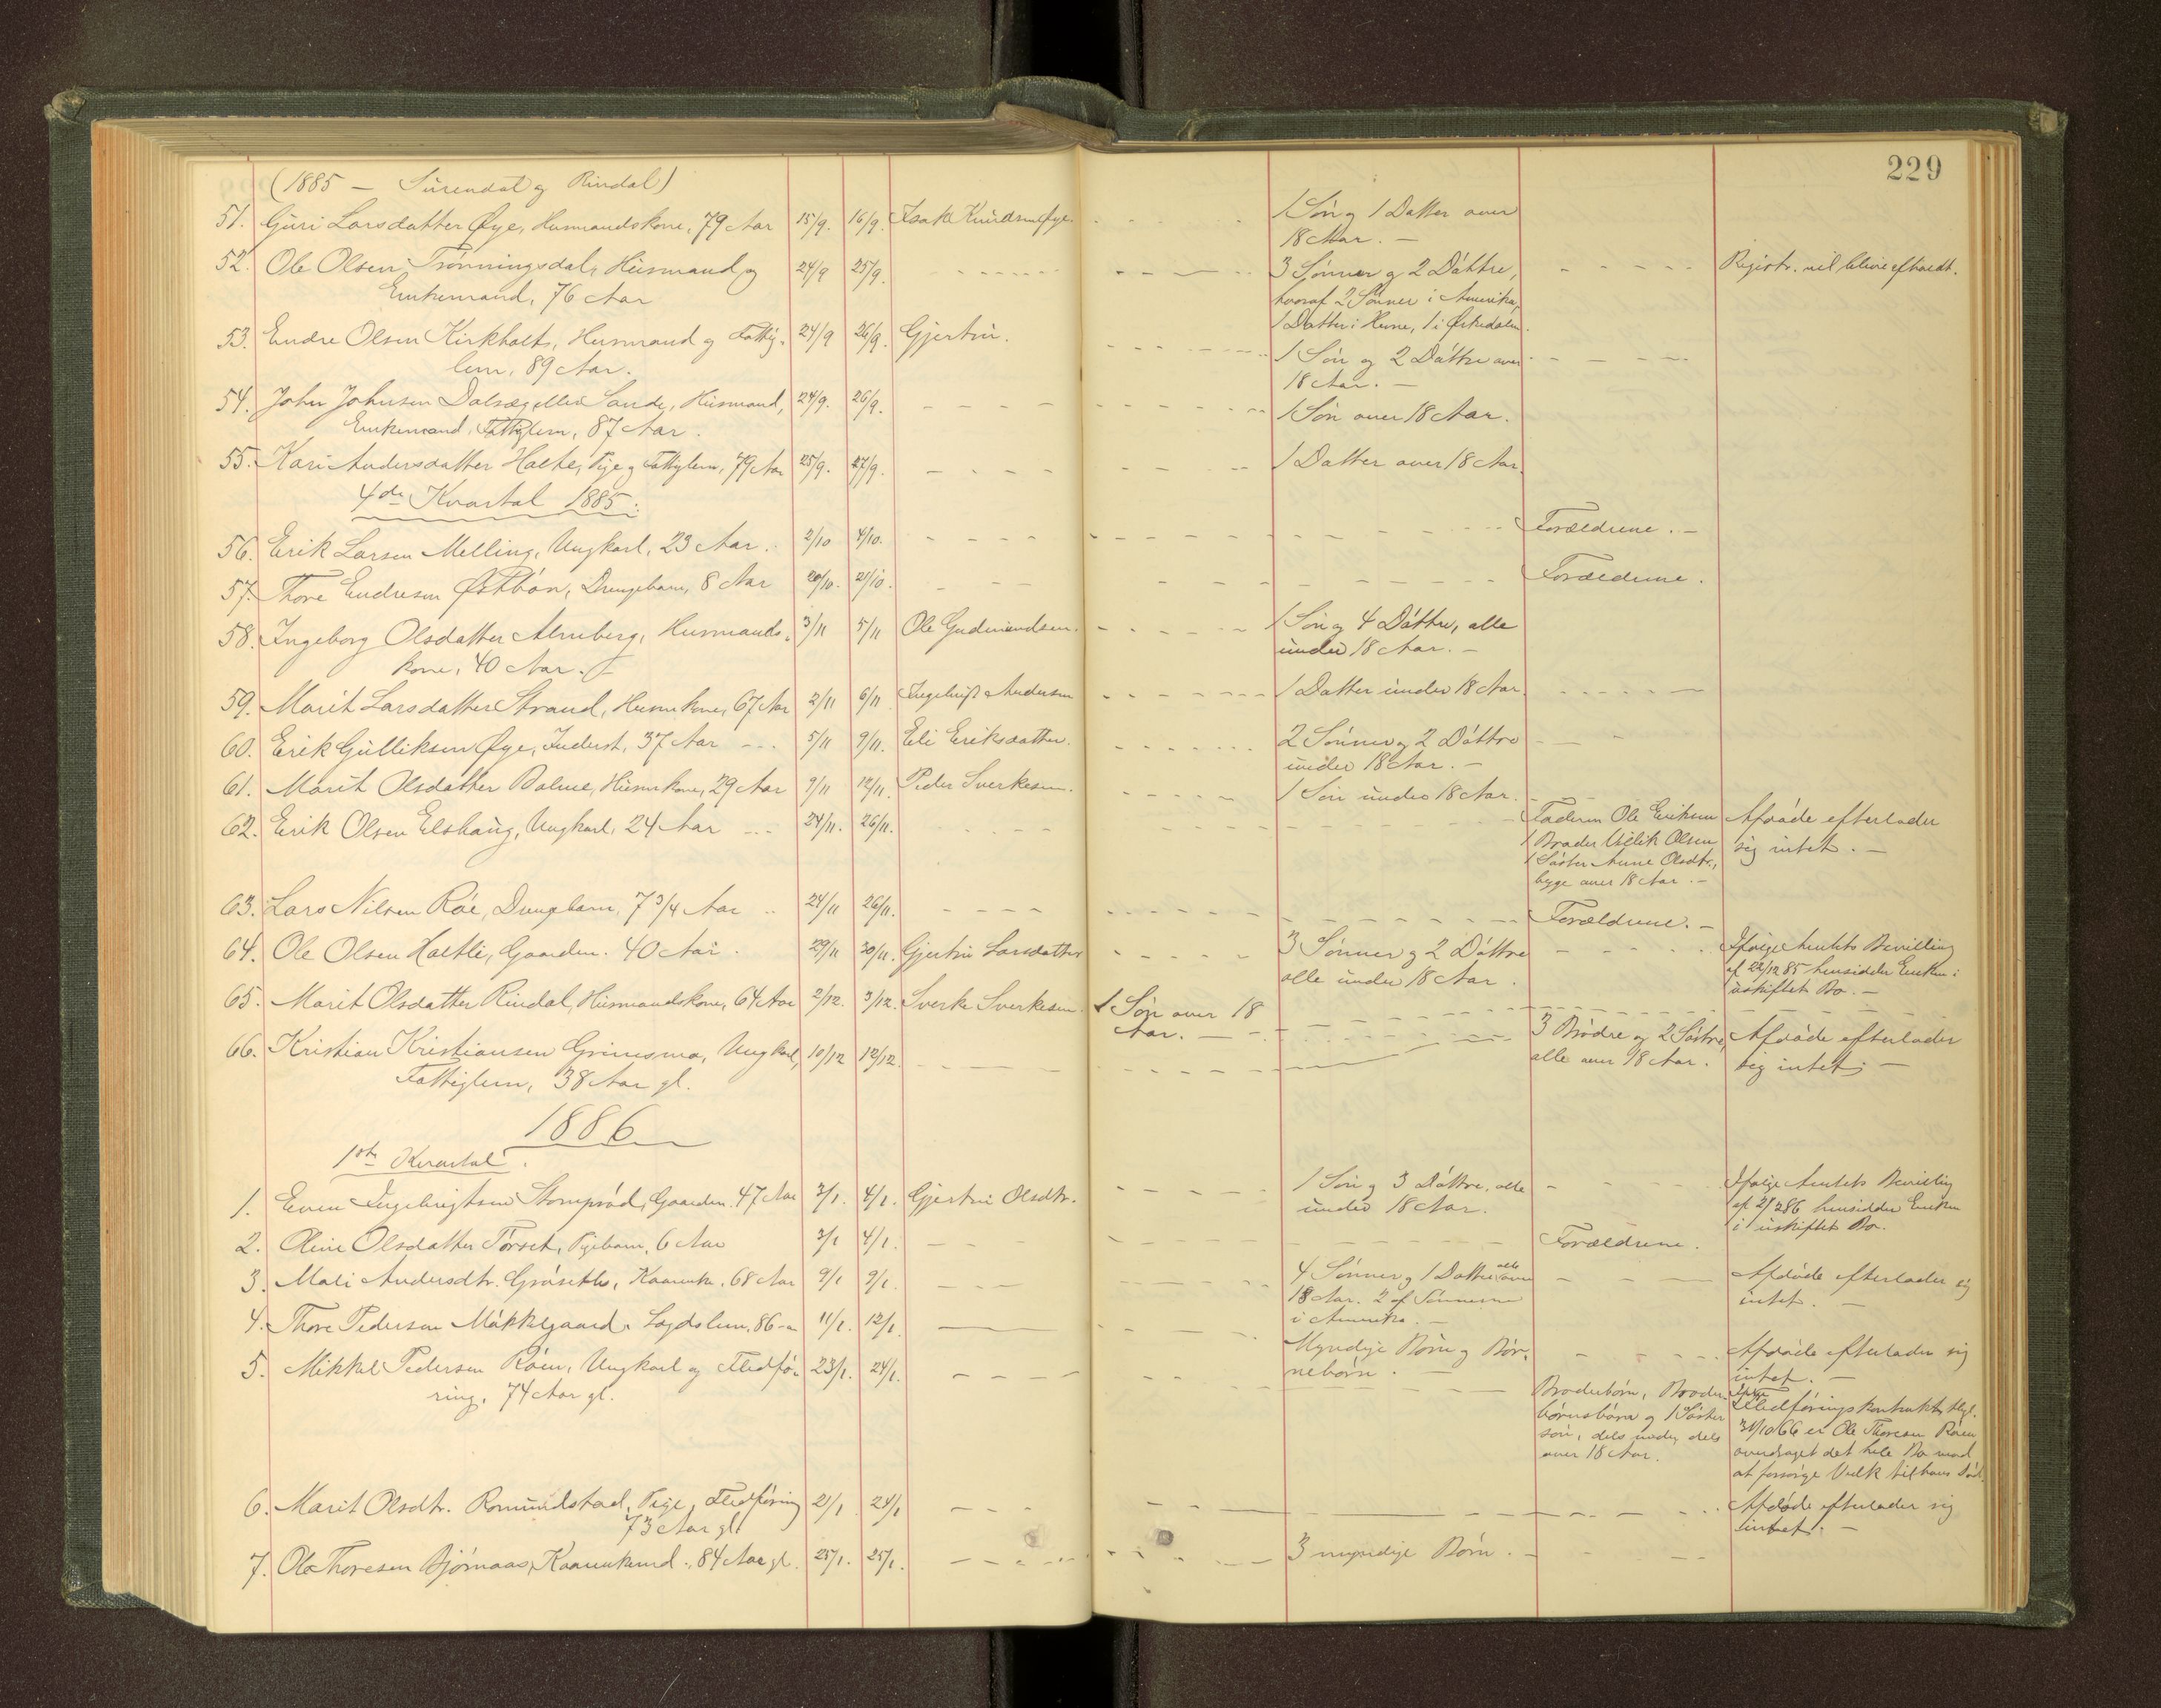 229
(1885 — Surendal og Rindal)
51. Guri Larsdatter Øye, Husmandskone, 79 Aar 15/9. 16/9. Isak Knudsen Øye. 1 Søn og 1 Datter over
18 Aar. —
52. Ole Olsen Trönningsdal, Husmand og 24/9 25/9. 3 Sönner og 2 Döttre, Registr. vil blive afholdt.
Enkemand, 76 Aar hvoraf 2 Sönner i Amerika,
1 Datter i Hevne, 1 i Örkedalen.
53. Endre Olsen Kirkholt, Husmand og Fattig- 24/9 26/9. Gjertru. 1 Sön og 2 Döttre over
lem, 89 Aar. 18 Aar. —
54. John Johnsen Dalsæg eller Sande, Husmand, 24/9. 26/9. 1 Sön over 18 Aar.
Enkemand, Fattiglem, 87 Aar.
55. Kari Andersdatter Holte, Pige og Fattiglem, 79 Aar 25/9. 27/9. 1 Datter over 18 Aar.
4de Kvartal 1885.
56. Erik Larsen Melling, Ungkarl, 23 Aar. 2/10 4/10. Forældrene. —
57. Thore Endresen Östbön, Drengebarn, 8 Aar 20/10. 21/10. Forældrene.
58. Ingeborg Olsdatter Almberg, Husmands- 3/11 5/11 Ole Gudmundsen. 1 Sön og 4 Döttre, alle
kone, 40 Aar. — under 18 Aar. —
59. Marit Larsdatter Strand, Husm. kone, 67 Aar 2/11 6/11 Ingebrigt Andersen 1 Datter under 18 Aar.
60. Erik Gulliksen Øye, Inderst, 37 Aar 5/11 9/11. Eli Eriksdatter. 2 Sönner og 2 Döttre
under 18 Aar. —
61. Marit Olsdatter Bolme, Husm. kone, 29 Aar 9/11 12/11. Peder Sverkesen. 1 Sön under 18 Aar.
62. Erik Olsen Elshaug, Ungkarl, 24 Aar 24/11. 26/11. Faderen Ole Eriksen Afdöde efterlader
1 Broder Olsen sig intet. —
1 Söster Anne Olsdtr.,
begge over 18 Aar. —
63. Lars Nilsen Röe, Drengebarn, 7 3/4 Aar 24/11 26/11. Forældrene. —
64. Ole Olsen Holtli, Gaardm. 40 Aar. 29/11 30/11. Gjertru Larsdatter 3 Sönner og 2 Döttre Ifölge Amtets Bevilling
alle under 18 Aar. af 22/12 85 hensidder Enken i
uskiftet Bo. —
65. Marit Olsdatter Rindal, Husmandskone, 64 Aar 2/12. 3/12. Sverke Sverkesen. 1 Sön over 18
Aar. —
66. Kristian Kristiansen Grimsmo, Ungkarl, 10/12 12/12. 3 Brödre og 2 Söstre, Afdöde efterlader
Fattiglem, 38 Aar gl. alle over 18 Aar. sig intet. —
1886
1ste Kvartal.
1. Even Ingebrigtsen Stomprød, Gaardm. 47 Aar 3/1. 4/1. Gjertru Olsdtr. 1 Sön og 3 Döttre, alle Ifölge Amtets Bevilling
under 18 Aar. af 2/2 86 hensidder Enken
i uskiftet Bo.
2. Oline Olsdatter Törset, Pigebarn, 6 Aar 3/1 4/1. Forældrene.
3. Mali Andersdtr. Gröseth, Kaarenke, 68 Aar 9/1 9/1. 4 Sönner og 1 Datter alle over Afdöde efterlader sig
18 Aar. 2 af Sönnerne intet. —
i Amerika. —
4. Thore Pedersen Mökkelgaard, Lægdslem, 86 11/1. 12/1. Myndige Börn og Bör- Afdöde efterlader sig
nebörn. intet. —
5. Mikkel Pedersen Röen, Ungkarl og Fledfö- 23/1. 24/1. Broderbörn, Broder- Ifölge Fledföringskontrakt, thgl.
ring, 74 Aar gl. börnsbörn og 1 Söster 31/10 66 er Ole Thoresen Röen
sön, dels under, dels overdraget det hele Bo mod
over 18 Aar. at forsörge til hans Död.
6. Marit Olsdtr. Romundstad, Pige, Fledföring 21/1. 24/1 Afdöde efterlader sig
73 Aar gl. intet. —
7. Ole Thoresen Bjørnaas, Kaarenkemd., 84 Aar gl. 25/1. 25/1. 3 myndige Börn.